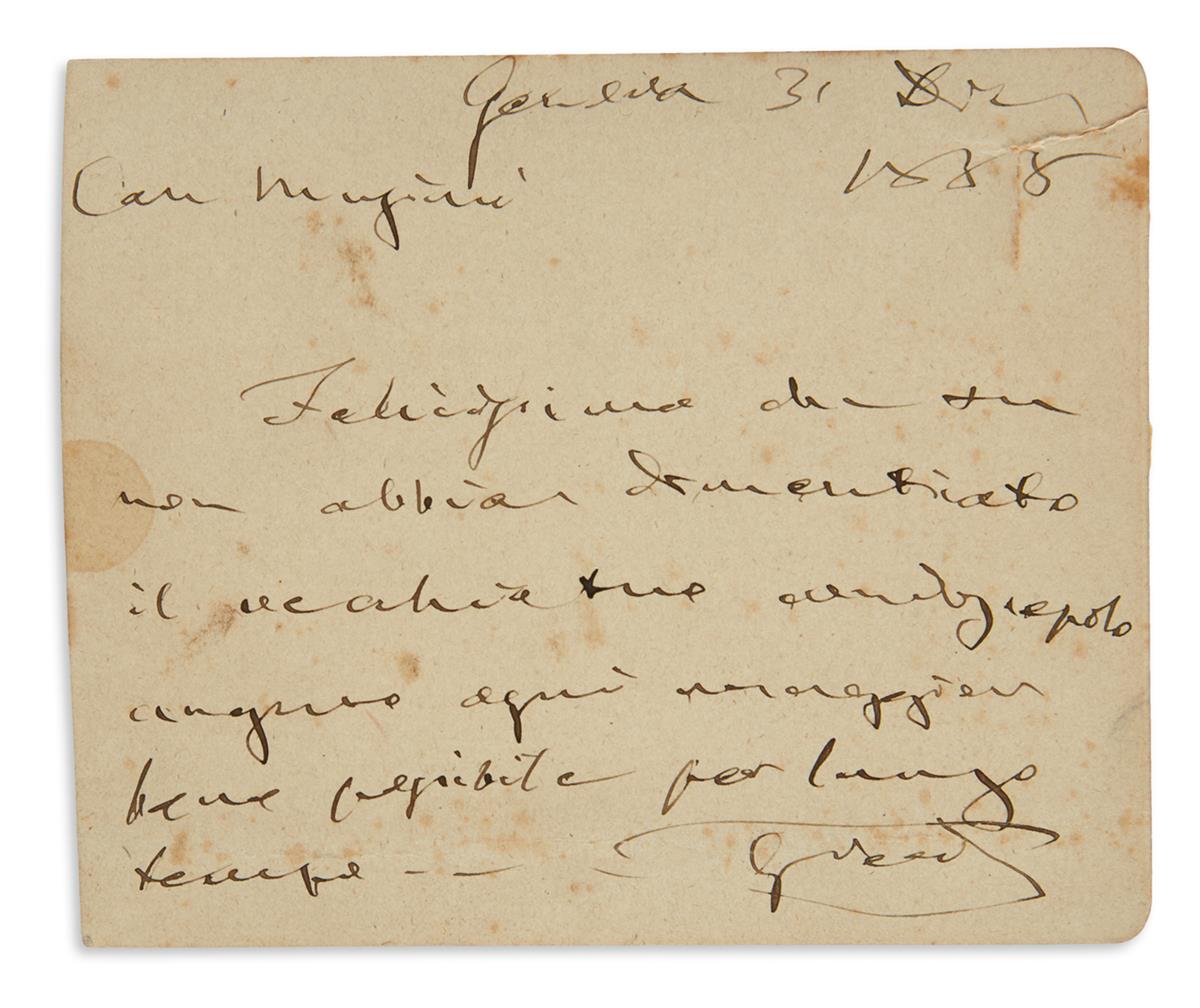 Genova 31 Dic
1888
Caro Mugini
Felicissimo che tu
non abbia dimenticato
il vecchio tuo
auguro ogni maggior
bene possibile per lungo
tempo - —
G Verdi